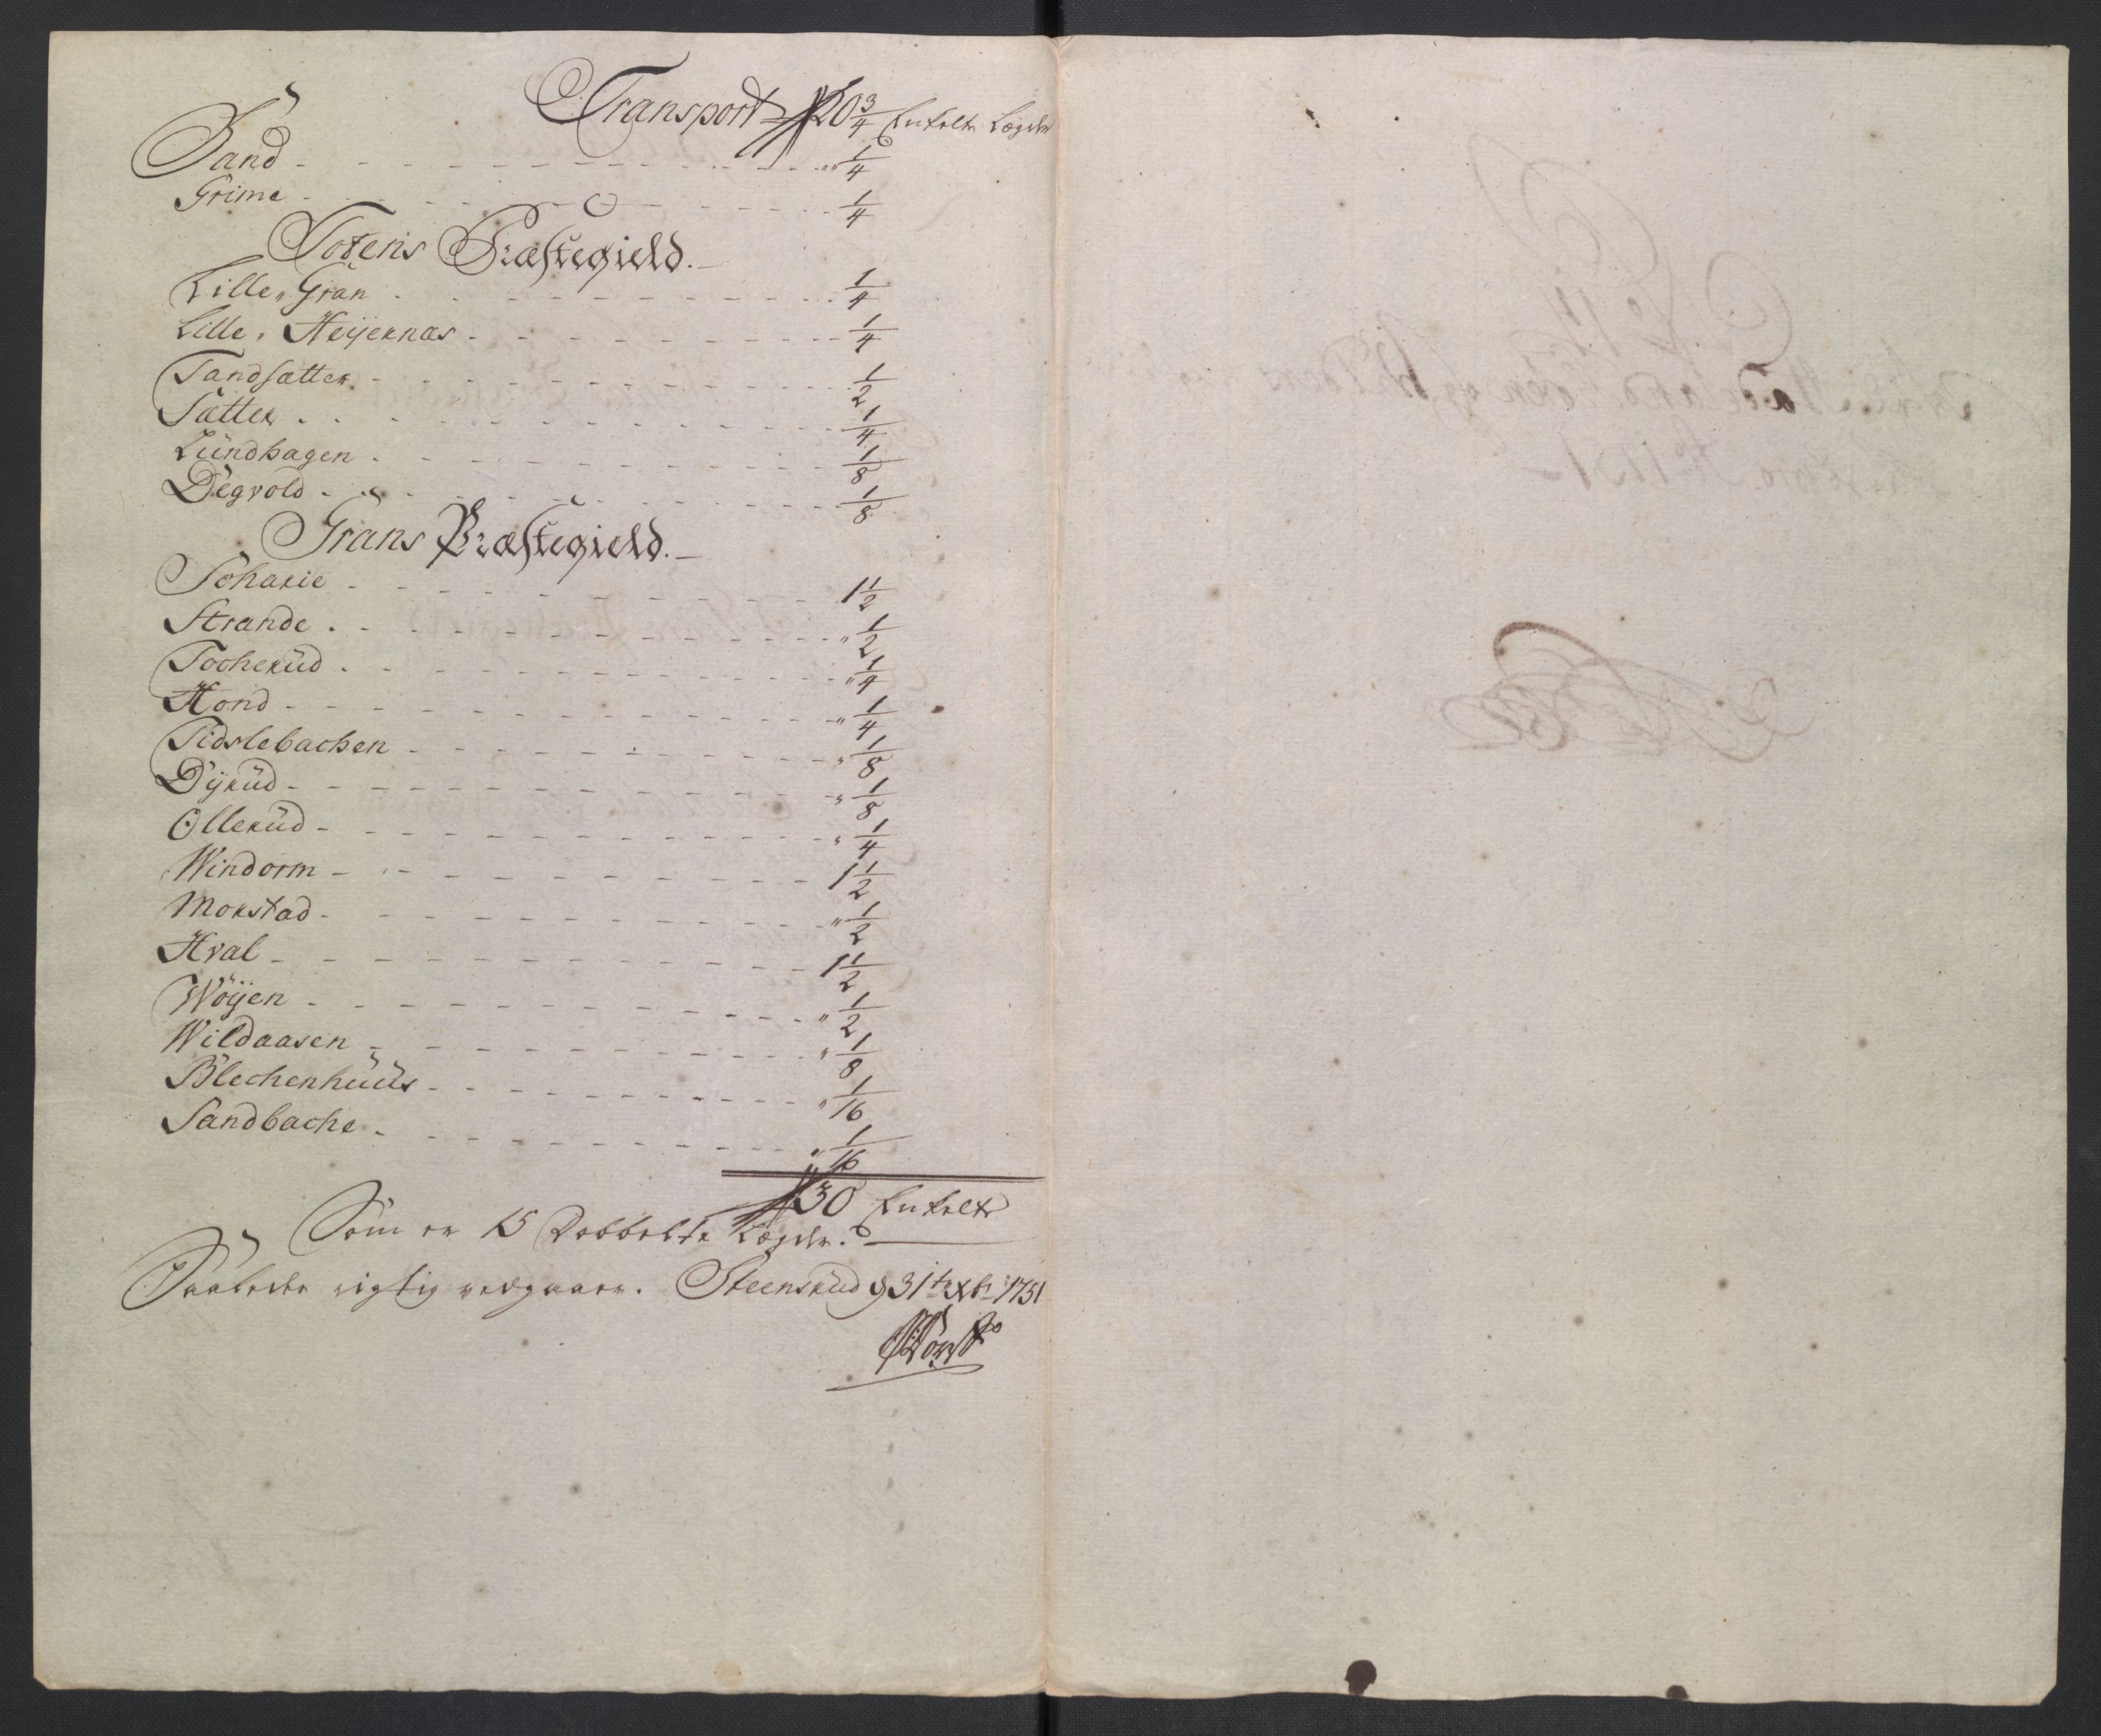 Transport 20 3/4 Enkelte Lægder
Sand - - - " 1/4
Grime - - - 1/4
Totens Præstegield.
Lille Gran - - - 1/4
Lille Heijernæs - - - 1/4
Tandsætter - - - 1/2
Sætter - - - 1/4
Lündhagen - - - 1/8
Degvold - - - 1/8
Grans Præstegield.
Scharie - - - 1 1/2
Strande - - - " 1/2
Tocherüd - - - " 1/4
Hond - - - " 1/4
Tidslebachen - - - " 1/8
Dÿrüd - - - " 1/8
Ollerüd - - - " 1/4
Windorm - - - 1 1/2
Morstad - - - " 1/2
Hval - - - 1 1/2
Wöÿen - - - " 1/2
Wildaasen - - - " 1/8
Blechenhüüs - - - " 1/16
Sandbache - - - " 1/16
30 Enkelte
Som er 15 Dobbelte Lægder.
Saaledes rigtig vedgaaer. Steensrüd d 31te Xbr 1751